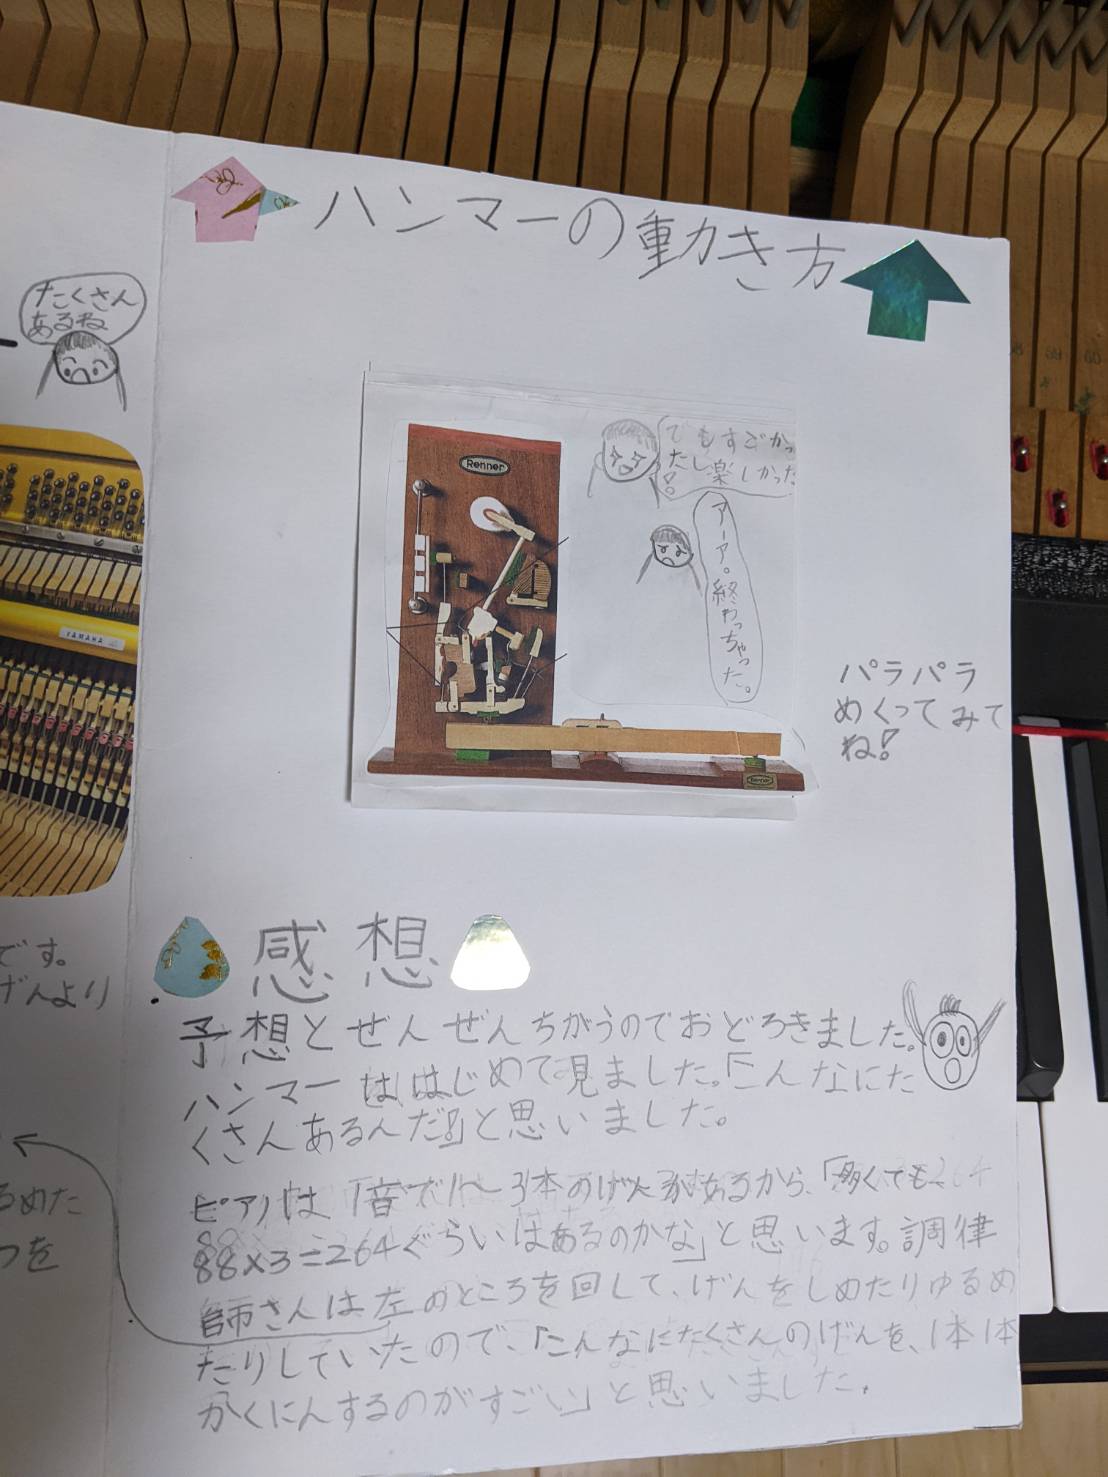 ハンマーの動き方
たくさん
あるね
YAMAHA
Renner
でもすごかっ
たし楽しかった
アーア。終わっちゃった。
Renner
パラパラ
めくってみて
ね!
です。
げんより
るめた
つを
感想
予想とぜんぜんちがうのでおどろきました。
ハンマーははじめて見ました。「こんなにた
くさんあるんだ!」と思いました。
ピアノは1音で1〜3本のげんがあるから、「多くても
88×3=264ぐらいはあるのかな」と思います。調律
師さんは左のところを回して、げんをしめたりゆるめ
たりしていたので、「こんなにたくさんのげんを、1本1本
かくにんするのがすごい」と思いました。